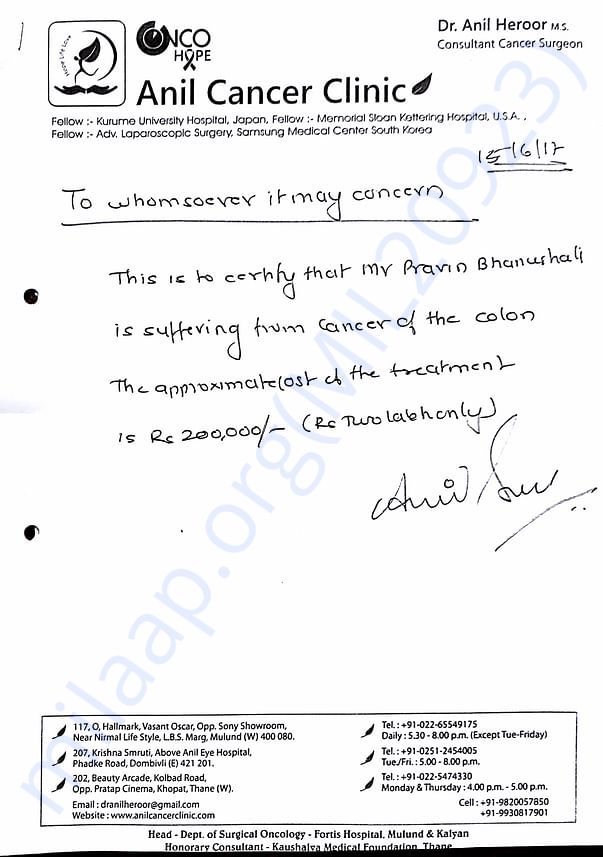 Hope Life Love
ONCO
HOPE
Dr. Anil Heroor M.S.
Consultant Cancer Surgeon
Anil Cancer Clinic
Fellow :- Kurume University Hospital, Japan, Fellow :- Memorial Sloan Kettering Hospital, U.S.A. ,
Fellow :- Adv. Laparoscopic Surgery, Samsung Medical Center South Korea
15/6/17
To whomsoever it may concern
This is to certify that Mr Pravin Bhanushali
is suffering from Cancer of the colon
The approximate cost of the treatment
is Rs 200,000/- (Rs Two lakh only)
milaap.org(MIL209923)
117, O, Hallmark, Vasant Oscar, Opp. Sony Showroom,
Near Nirmal Life Style, L.B.S. Marg, Mulund (W) 400 080.
207, Krishna Smruti, Above Anil Eye Hospital,
Phadke Road, Dombivli (E) 421 201.
202, Beauty Arcade, Kolbad Road,
Opp. Pratap Cinema, Khopat, Thane (W).
Email : dranilheroor@gmail.com
Website : www.anilcancerclinic.com
Tel. : +91-022-65549175
Daily : 5.30 - 8.00 p.m. (Except Tue-Friday)
Tel. : +91-0251-2454005
Tue./Fri. : 5.00 - 8.00 p.m.
Tel. : +91-022-5474330
Monday & Thursday : 4.00 p.m. - 5.00 p.m.
Cell : +91-9820057850
+91-9930817901
Head - Dept. of Surgical Oncology - Fortis Hospital, Mulund & Kalyan
Honorary Consultant - Kaushalya Medical Foundation, Thane